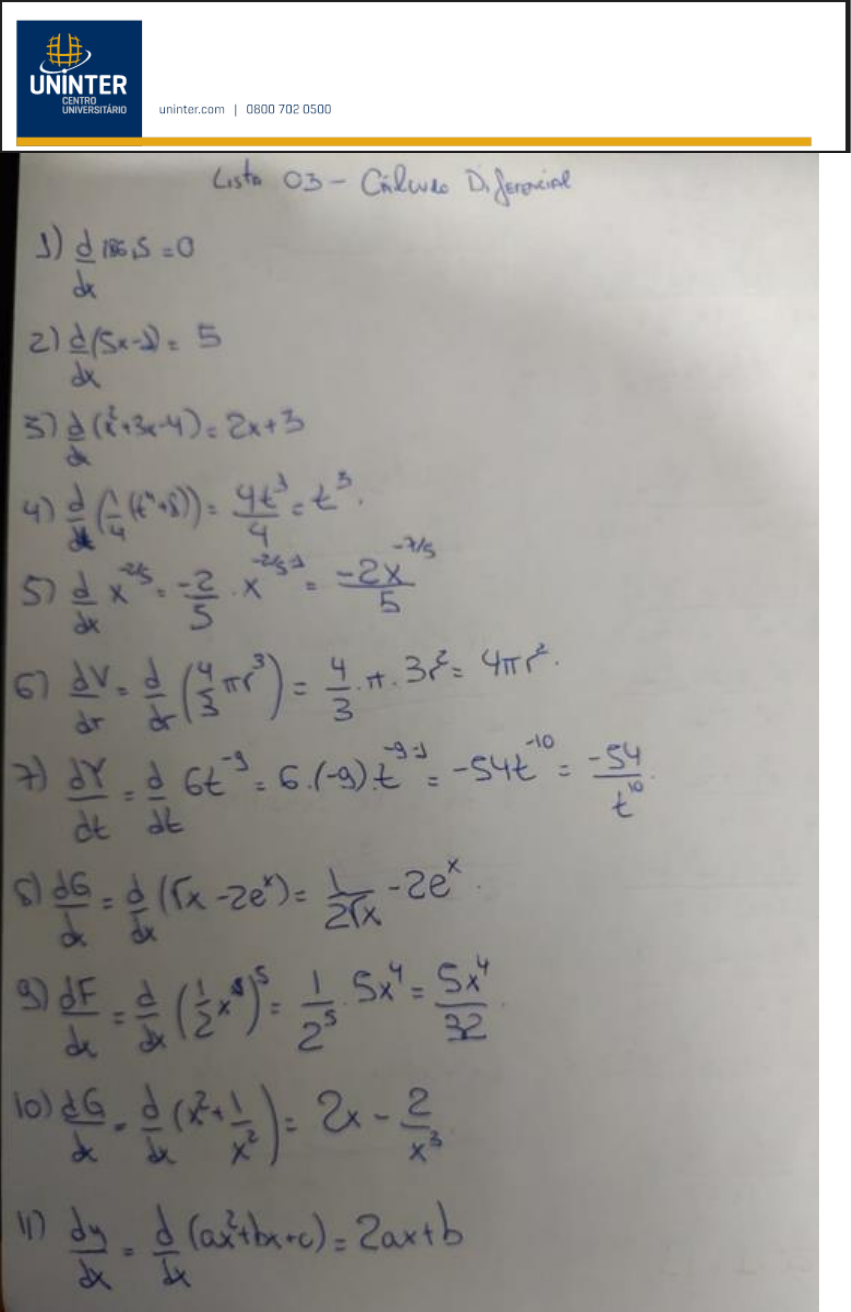 UNINTER
CENTRO
UNIVERSITÁRIO
uninter.com | 0800 702 0500
Lista 03 - Cálculo Diferencial
1) d/dx 186,5 = 0
2) d/dx (5x-1) = 5
3) d/dx (x²+3x-4) = 2x+3
4) d/dt (1/4 (t⁴+8)) = 4t³/4 = t³.
5) d/dx x^(-2/5) = -2/5 · x^(-2/5-1) = -2x^(-7/5)/5
6) dV/dr = d/dr (4/3 πr³) = 4/3 · π · 3r² = 4πr².
7) dY/dt = d/dt 6t⁻⁹ = 6·(-9)·t⁻⁹⁻¹ = -54t⁻¹⁰ = -54/t¹⁰.
8) dG/dx = d/dx (√x - 2eˣ) = 1/(2√x) - 2eˣ.
9) dF/dx = d/dx (1/2 x)⁵ = 1/2⁵ · 5x⁴ = 5x⁴/32.
10) dG/dx = d/dx (x² + 1/x²) = 2x - 2/x³
11) dy/dx = d/dx (ax²+bx+c) = 2ax+b